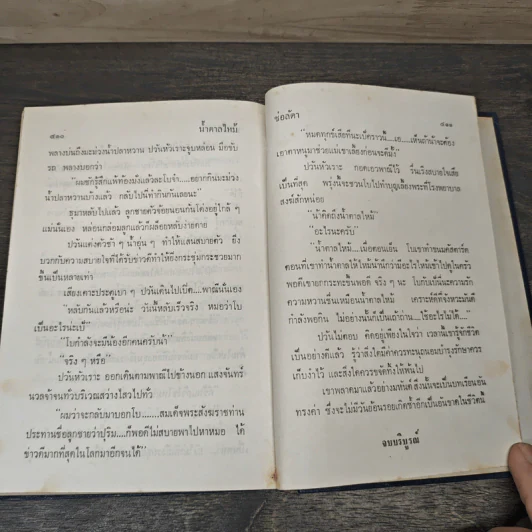 ๕๑๐
น้ำตาลไหม้
พลางบ่นถึงมะม่วงน้ำปลาหวาน ปวันหัวเราะจูบหล่อน มีกขับ
รถ พลางบอกว่า
"ผมชักรู้สึกแพ้ท้องมั่งแล้วละใบจ๋า...อยากกินมะม่วง
น้ำปลาหวานบ้างแล้ว กลับไปนี่ทำกินกันเลยนะ"
ธุมาหลับไปแล้ว ลูกชายตัวจ้อยนอนกันโด่งอยู่ใกล้ ๆ
แม่นั่นเอง หล่อนกล่อมลูกแล้วก็เผลอหลับง่ายดาย
ปวันแต่งตัวช้า ๆ น้ำอุ่น ๆ ทำให้แสนสบายตัว ยิ่ง
บวกกับความสบายใจที่ได้รับข่าวดีทำให้กระชุ่มกระชวยมาก
ขึ้นเป็นหลายเท่า
เสียงเคาะประตูเบา ๆ ปวันเดินไปเปิด...พาณีนั่นเอง
"หลับกันแล้วหรือนะ วันนี้หลับเร็วจริง หมอว่าใบ
เป็นอะไรน่ะเป้"
"ใบกำลังจะมีน้องอีกคนครับน้า"
"จริง ๆ หรือ"
ปวันหัวเราะ ออกเดินตามพาณีไปข้างนอก แสงจันทร์
นวลจ้าจนทั่วบริเวณสว่างไสวไปทั่ว
"ผมว่าจะกลับมาบอกใบ.......สมเด็จพระสังฆราชท่าน
ประทานชื่อลูกชายว่าปุริม....ก็พอดีใบไม่สบายพาไปหาหมอ ได้
ข่าวดีมากที่สุดในโลกมาอีกจนได้"
ช่อลัดา
๕๑๑
"หมดทุกข์เสียทีนะเป้คราวนี้...เอ....เห็นถ้าน้าจะต้อง
เอาตาหนูมาช่วยแม่เขาเลี้ยงก่อนจะดีมั้ง"
ปวันหัวเราะ กอดเอวพาณีไว้ รื่นเริงสบายใจเสีย
เป็นที่สุด พรุ่งนี้จะชวนใบไปทำบุญเลี้ยงพระที่โรงพยาบาล
สงฆ์สักหน่อย
"น้าคิดถึงน้ำตาลไหม้"
"อะไรนะครับ"
"น้ำตาลไหม้....เมื่อตอนเย็น ใบเขาทำขนมคัสตาร์ด
ตอนที่เขาทำน้ำตาลไหม้ให้น้านึกว่ามีอะไรไหม้เข้าไปดูในครัว
พอดีเขายกกระทะขึ้นพอดี จริง ๆ นะ ใบกับเป้นี่นะความรัก
ความหวานขึ้นเหมือนน้ำตาลไหม้ เคราะห์ดีที่จังหวะมันดี
กำลังพอกิน ไม่อย่างนั้นก็เป็นเถ้าถ่าน....ใช้อะไรไม่ได้..."
ปวันไม่ตอบ คิดอยู่เพียงในใจว่า เวลานี้เขารู้จักชีวิต
เป็นอย่างดีแล้ว รู้ว่าสิ่งใดมีค่าควรทะนุถนอมบำรุงรักษาควร
เก็บงำไว้ และสิ่งใดควรขจัดทิ้งให้พ้นไป
เขาพลาดมาแล้วอย่างมหันต์ สิ่งนั้นจะเป็นบทเรียนอัน
ทรงค่า ซึ่งจะไม่มีวันย้อนรอยเกิดซ้ำอีกเป็นอันขาดในชีวิตนี้
จบบริบูรณ์